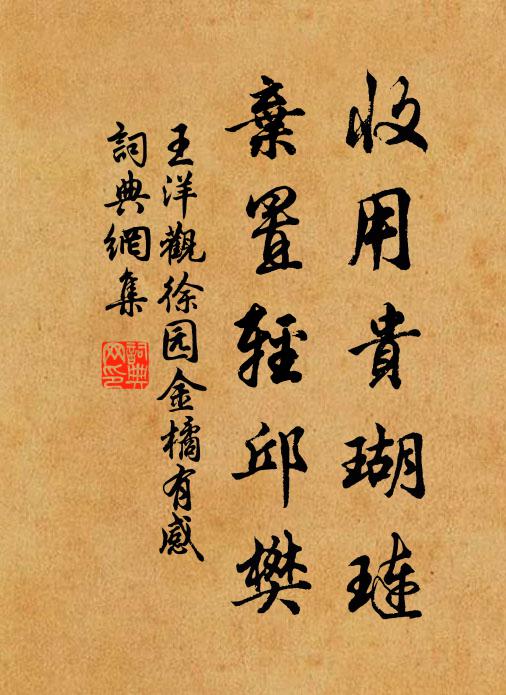 收用貴瑚璉
棄置輕邱樊
王洋觀徐园金橘有感
詞典網集
詞典網印